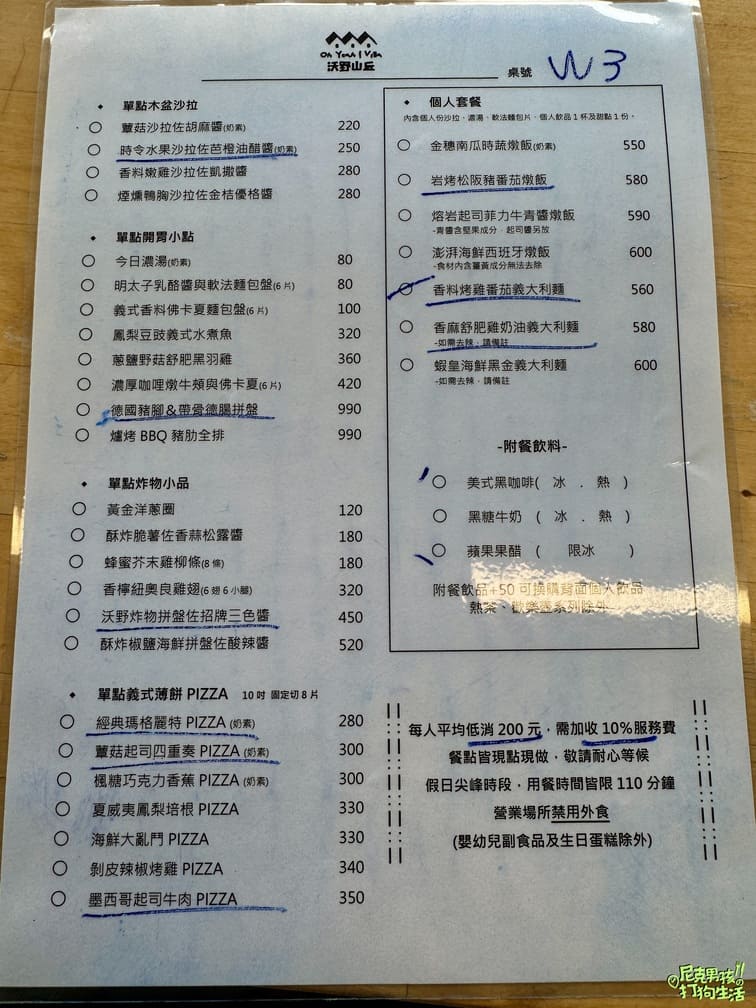 On Yeah! Villa
沃野山丘
桌號 W3
◆ 單點木盆沙拉
蕈菇沙拉佐胡麻醬(奶素) 220
時令水果沙拉佐芭橙油醋醬(奶素) 250
香料嫩雞沙拉佐凱撒醬 280
煙燻鴨胸沙拉佐金桔優格醬 280
◆ 單點開胃小點
今日濃湯(奶素) 80
明太子乳酪醬與軟法麵包盤(6片) 80
義式香料佛卡夏麵包盤(6片) 100
鳳梨豆豉義式水煮魚 320
蔥鹽野菇舒肥黑羽雞 360
濃厚咖哩燉牛頰與佛卡夏(6片) 420
德國豬腳&帶骨德腸拼盤 990
爐烤 BBQ 豬肋全排 990
◆ 單點炸物小品
黃金洋蔥圈 120
酥炸脆薯佐香蒜松露醬 180
蜂蜜芥末雞柳條(8條) 180
香檸紐奧良雞翅(6翅6小腿) 320
沃野炸物拼盤佐招牌三色醬 450
酥炸椒鹽海鮮拼盤佐酸辣醬 520
◆ 單點義式薄餅 PIZZA 10吋 固定切8片
經典瑪格麗特 PIZZA (奶素) 280
蕈菇起司四重奏 PIZZA (奶素) 300
楓糖巧克力香蕉 PIZZA (奶素) 300
夏威夷鳳梨培根 PIZZA 330
海鮮大亂鬥 PIZZA 330
剝皮辣椒烤雞 PIZZA 340
墨西哥起司牛肉 PIZZA 350
◆ 個人套餐
內含個人份沙拉、濃湯、軟法麵包片、個人飲品1杯及甜點1份。
金穗南瓜時蔬燉飯(奶素) 550
岩烤松阪豬番茄燉飯 580
熔岩起司菲力牛青醬燉飯 590
-青醬含堅果成分，起司醬另放
澎湃海鮮西班牙燉飯 600
-食材內含薑黃成分無法去除
香料烤雞番茄義大利麵 560
香麻舒肥雞奶油義大利麵 580
-如需去辣，請備註
蝦皇海鮮黑金義大利麵 600
-如需去辣，請備註
-附餐飲料-
美式黑咖啡( 冰 . 熱 )
黑糖牛奶 ( 冰 . 熱 )
蘋果果醋 ( 限冰 )
附餐飲品+50 可換購背面個人飲品
熱茶、歡樂壺系列除外
每人平均低消 200 元，需加收 10%服務費
餐點皆現點現做，敬請耐心等候
假日尖峰時段，用餐時間皆限 110 分鐘
營業場所禁用外食
(嬰幼兒副食品及生日蛋糕除外)
尼克男孩の
打狗生活